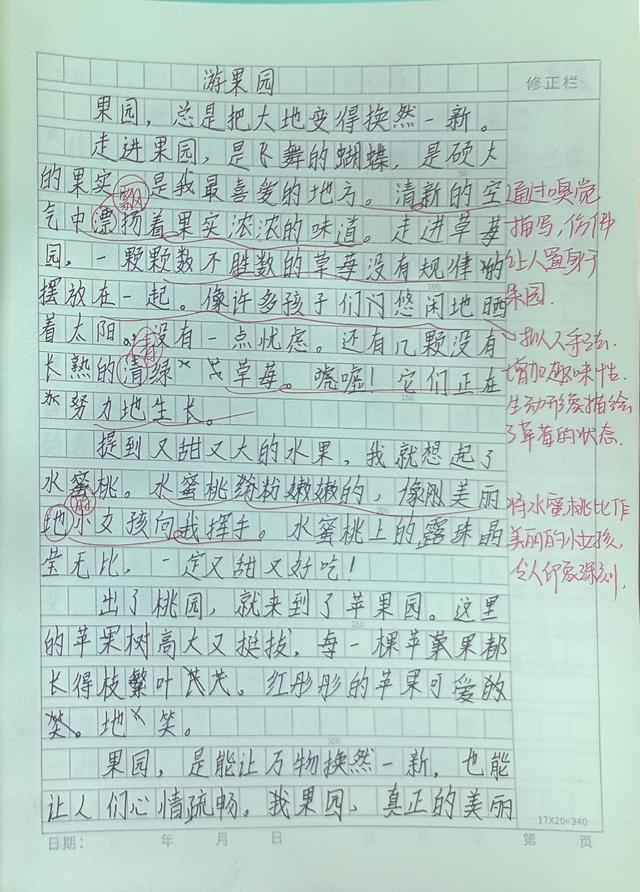 游果园
修正栏
果园，总是把大地变得换然一新。
走进果园，是飞舞的蝴蝶，是硕大
的果实 是我最喜爱的地方。清新的空
飘
气中漂扬着果实浓浓的味道。走进草莓
园，一颗颗数不胜数的草莓没有规律的
摆放在一起。像许多孩子们闪悠闲地晒
着太阳。没有一点忧虑。还有几颗没有
青
长熟的清绿 草莓。嘘嘘！它们正在
努力地生长。
提到又甜又大的水果，我就想起了
水蜜桃。水蜜桃粉粉嫩嫩的，像刚美丽
的
地小女孩向我挥手。水蜜桃上的露珠晶
莹无比，一定又甜又好吃！
出了桃园，就来到了苹果园。这里
的苹果树高大又挺拔，每一棵苹果都
长得枝繁叶茂。红彤彤的苹果可爱的
笑。地 笑。
果园，是能让万物换然一新，也能
让人们心情疏畅。我果园、真正的美丽
通过嗅觉
描写，仿佛
让人置身于
果园.
拟人手法.
增加趣味性.
生动形象描绘
了草莓的状态.
将水蜜桃比作
美丽的小女孩,
令人印象深刻.
50
100
150
250
300
17X20=340
日期： 年 月 日 第 页